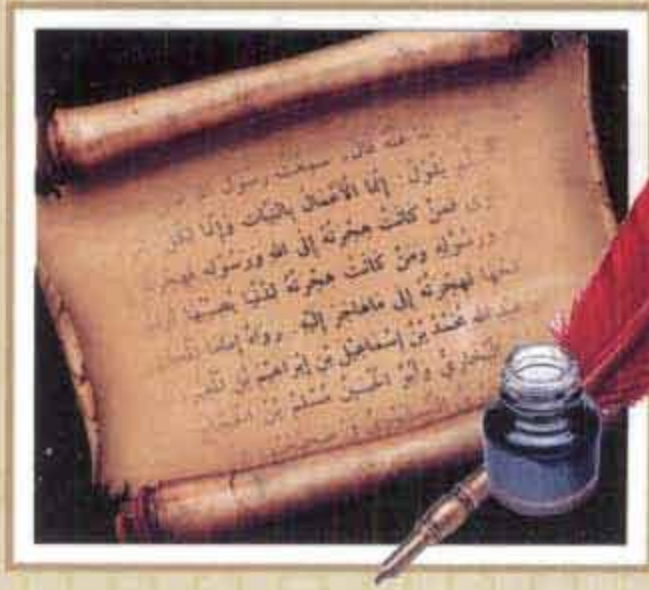 عنه قال: سمعت رسول
يقول: إنما الأعمال بالنيات وإنما لكل
فمن كانت هجرته إلى الله ورسوله فهجرته
ورسوله ومن كانت هجرته لدنيا يصيبها
فهجرته إلى ماهاجر إليه. رواه إماما
الله محمد بن إسماعيل بن إبراهيم بن
البخاري وأبو الحسين مسلم بن الحجاج